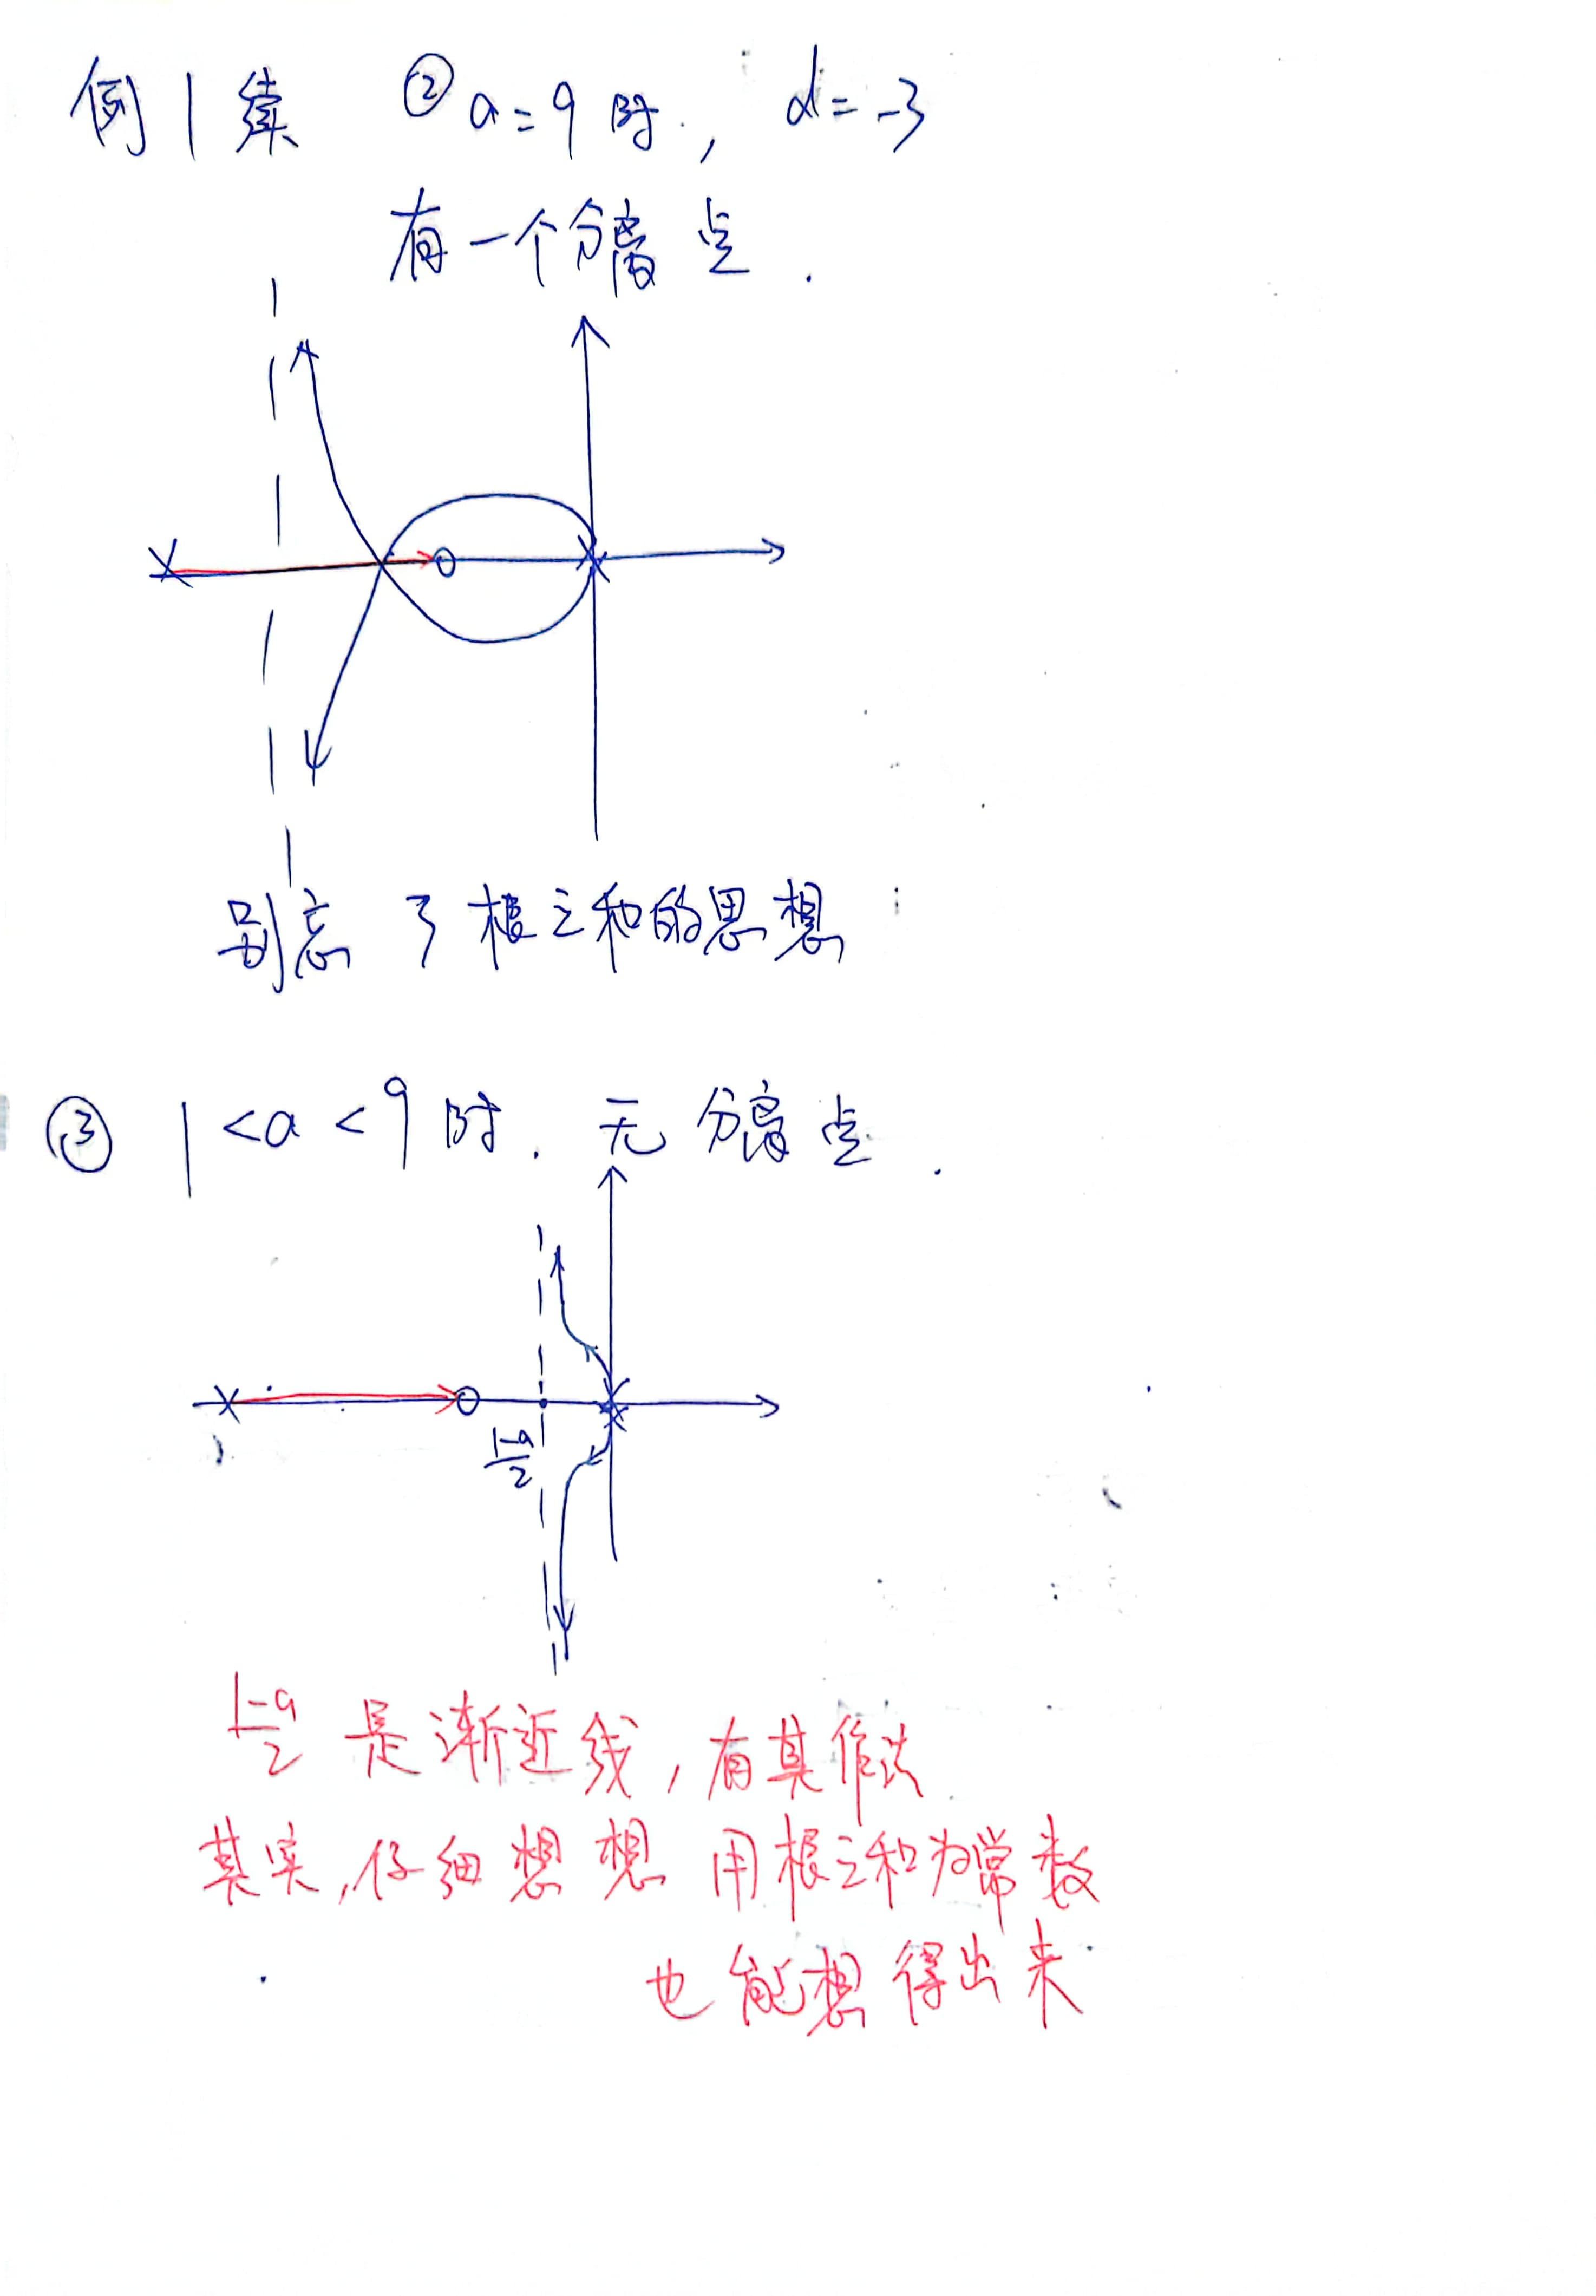 例1续 ② a=9时, d=-3
有一个分离点.
别忘了根之和的思想
③ 1<a<9时. 无分离点.
1-a/2
1-a/2 是渐近线, 有其作法.
其实, 仔细想想 用根之和为常数
也能想得出来